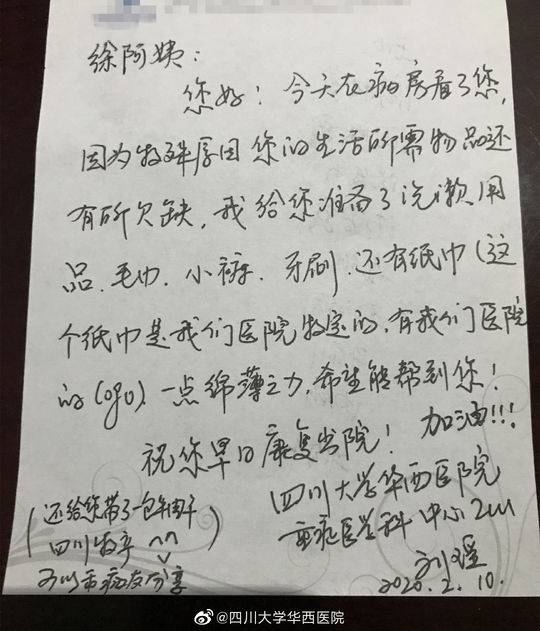 徐阿姨：
您好！今天在病房看了您,
因为特殊原因您的生活所需物品还
有所欠缺，我给您准备了洗漱用
品、毛巾、小裤、牙刷、还有纸巾（这
个纸巾是我们医院特定的，有我们医院
的logo）、一点绵薄之力，希望能帮到您！
祝您早日康复出院！ 加油!!!
四川大学华西医院
重症医学科 中心ICU
2020.2.10.
（还给您带了一包牛肉干
四川特产 ^^
可以和病友分享）
@四川大学华西医院